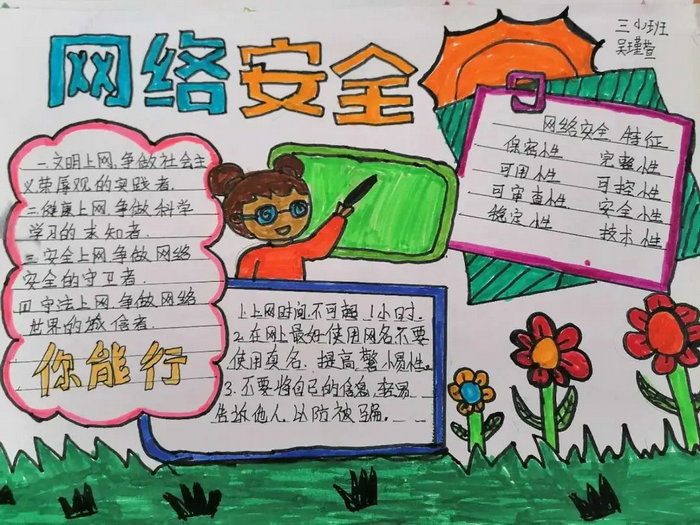 网络安全
三小班
吴瑾萱
一.文明上网,争做社会主
义荣辱观的实践者.
二.健康上网,争做科学
学习的求知者.
三.安全上网,争做网络
安全的守卫者.
四.守法上网,争做网络
世界的诚信者.
你能行
网络安全 特征
保密性 完整性
可用性 可控性
可审查性 安全小性
稳定性 技术性
1.上网时间,不可超1小时.
2.在网上最好使用网名,不要
使用真名.提高警惕性.
3.不要将自己的信息,轻易
告诉他人,以防被骗.